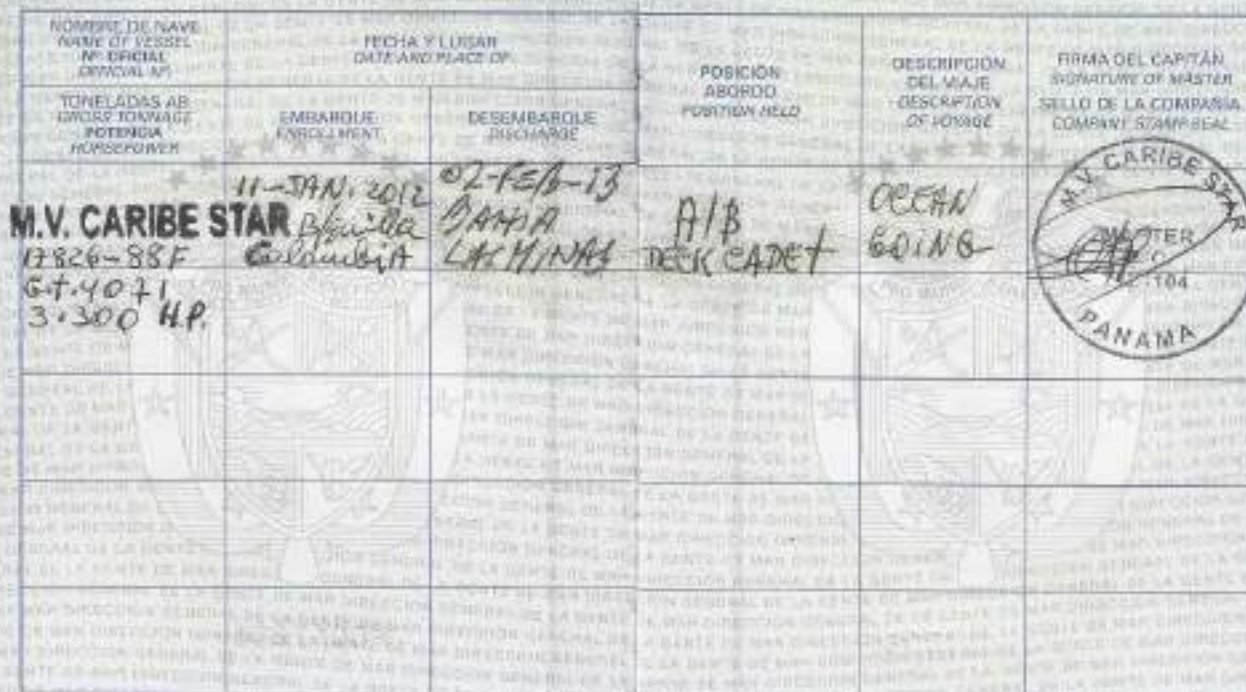 NOMBRE DE NAVE
NAME OF VESSEL
Nº OFICIAL
OFFICIAL Nº
TONELADAS AB
GROSS TONNAGE
POTENCIA
HORSEPOWER
FECHA Y LUGAR
DATE AND PLACE OF
EMBARQUE
ENROLLMENT
DESEMBARQUE
DISCHARGE
POSICIÓN
ABORDO
POSITION HELD
DESCRIPCIÓN
DEL VIAJE
DESCRIPTION
OF VOYAGE
FIRMA DEL CAPITÁN
SIGNATURE OF MASTER
SELLO DE LA COMPAÑIA
COMPANY STAMP-SEAL
M.V. CARIBE STAR
17826-88F
G.t.4071
3.300 H.P.
11-JAN.2012
B/quilla
Colombia
02-FEB-13
BAHIA
LAS MINAS
A/B
DECK CADET
OCEAN
GOING
M.V. CARIBE STAR
104
PANAMA